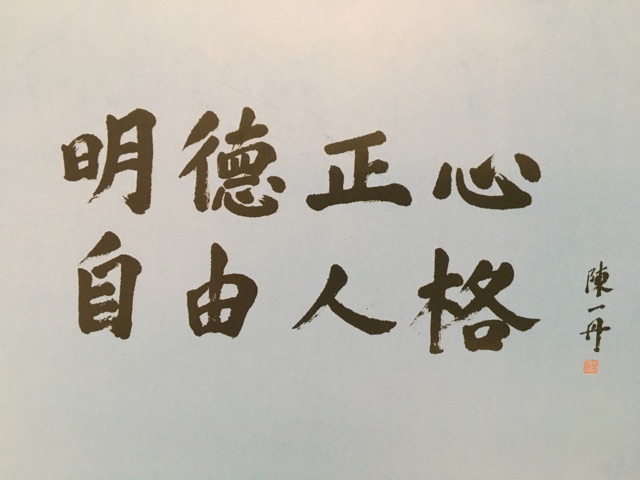 明德正心
自由人格
陳一丹